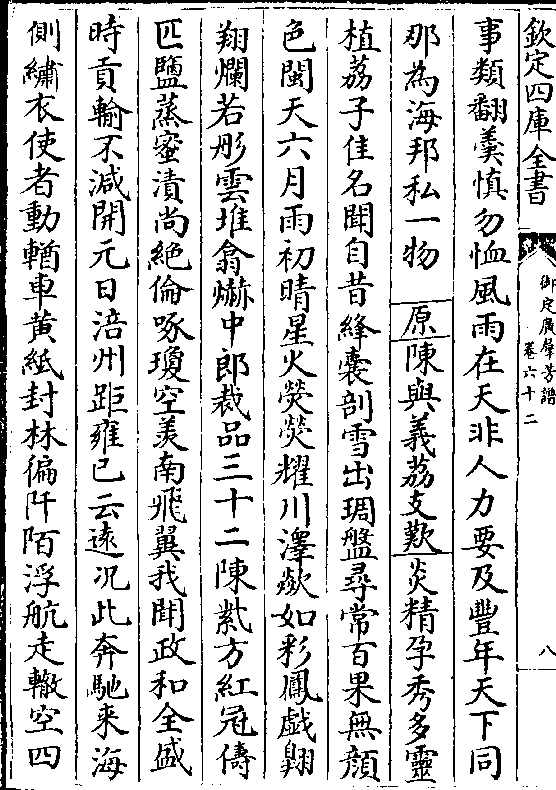 欽定四庫全書
御定廣羣芳譜
卷六十二
八
事類翻羹慎勿恤風雨在天非人力要及豐年天下同
那為海邦私一物
原陳與義荔支歎炎精孕秀多靈
植荔子佳名聞自昔絳囊剖雪出琱盤尋常百果無顔
色閩天六月雨初晴星火熒熒耀川澤歘如彩鳳戯翺
翔爛若彤雲堆翕赩中郎裁品三十二陳紫方紅冠儔
匹鹽蒸蜜漬尚絶倫啄瓊空羡南飛翼我聞政和全盛
時貢輸不減開元日涪州距雍已云遠况此奔馳来海
側繡衣使者動輶車黄紙封林徧阡陌浮航走轍空四